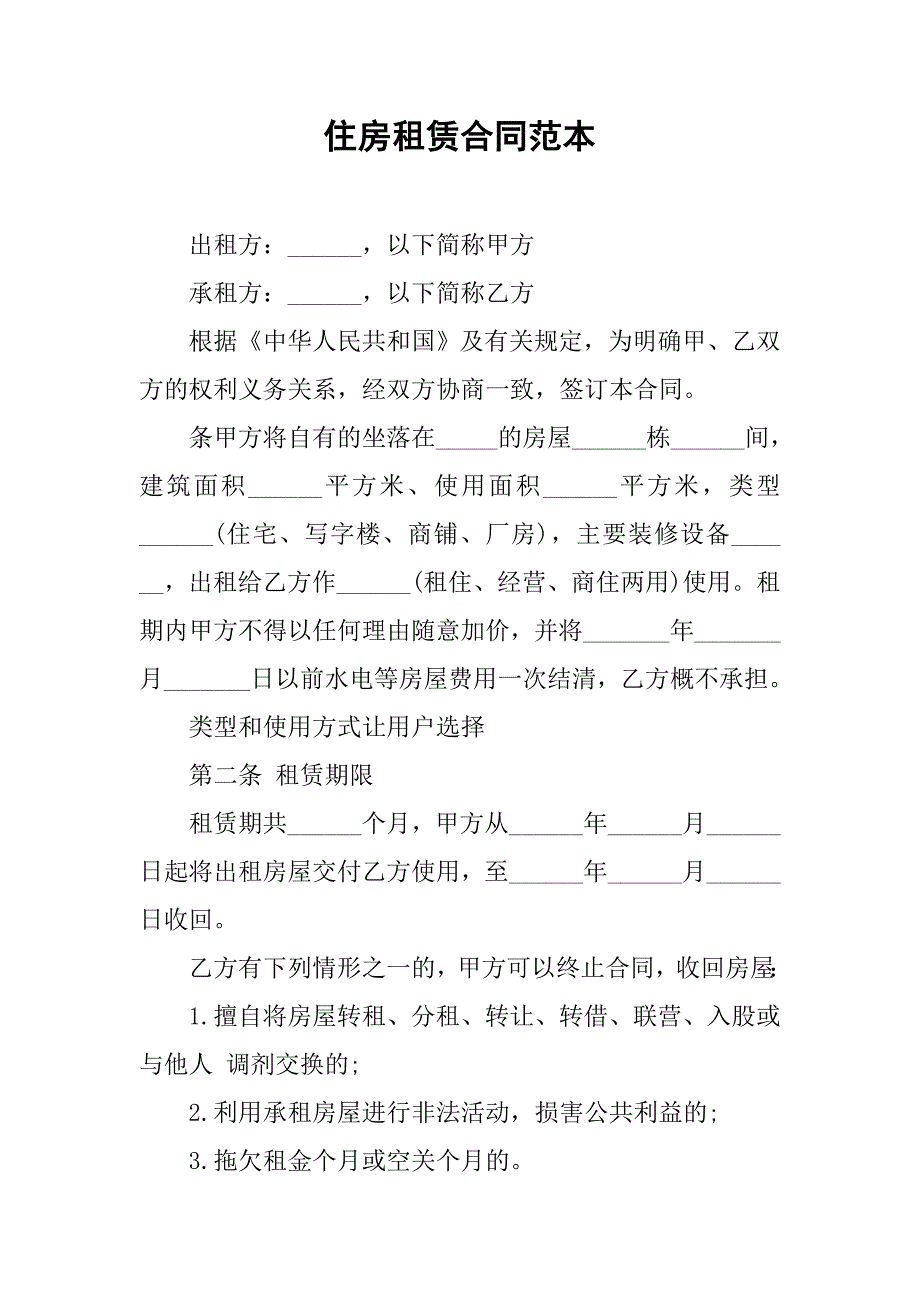 住房租赁合同范本
出租方：______，以下简称甲方
承租方：______，以下简称乙方
根据《中华人民共和国》及有关规定，为明确甲、乙双
方的权利义务关系，经双方协商一致，签订本合同。
条甲方将自有的坐落在_____的房屋______栋______间，
建筑面积______平方米、使用面积______平方米，类型
______(住宅、写字楼、商铺、厂房)，主要装修设备____
__，出租给乙方作______(租住、经营、商住两用)使用。租
期内甲方不得以任何理由随意加价，并将_______年_______
月_______日以前水电等房屋费用一次结清，乙方概不承担。
类型和使用方式让用户选择
第二条 租赁期限
租赁期共______个月，甲方从______年______月______
日起将出租房屋交付乙方使用，至______年______月______
日收回。
乙方有下列情形之一的，甲方可以终止合同，收回房屋：
1.擅自将房屋转租、分租、转让、转借、联营、入股或
与他人 调剂交换的;
2.利用承租房屋进行非法活动，损害公共利益的;
3.拖欠租金个月或空关个月的。